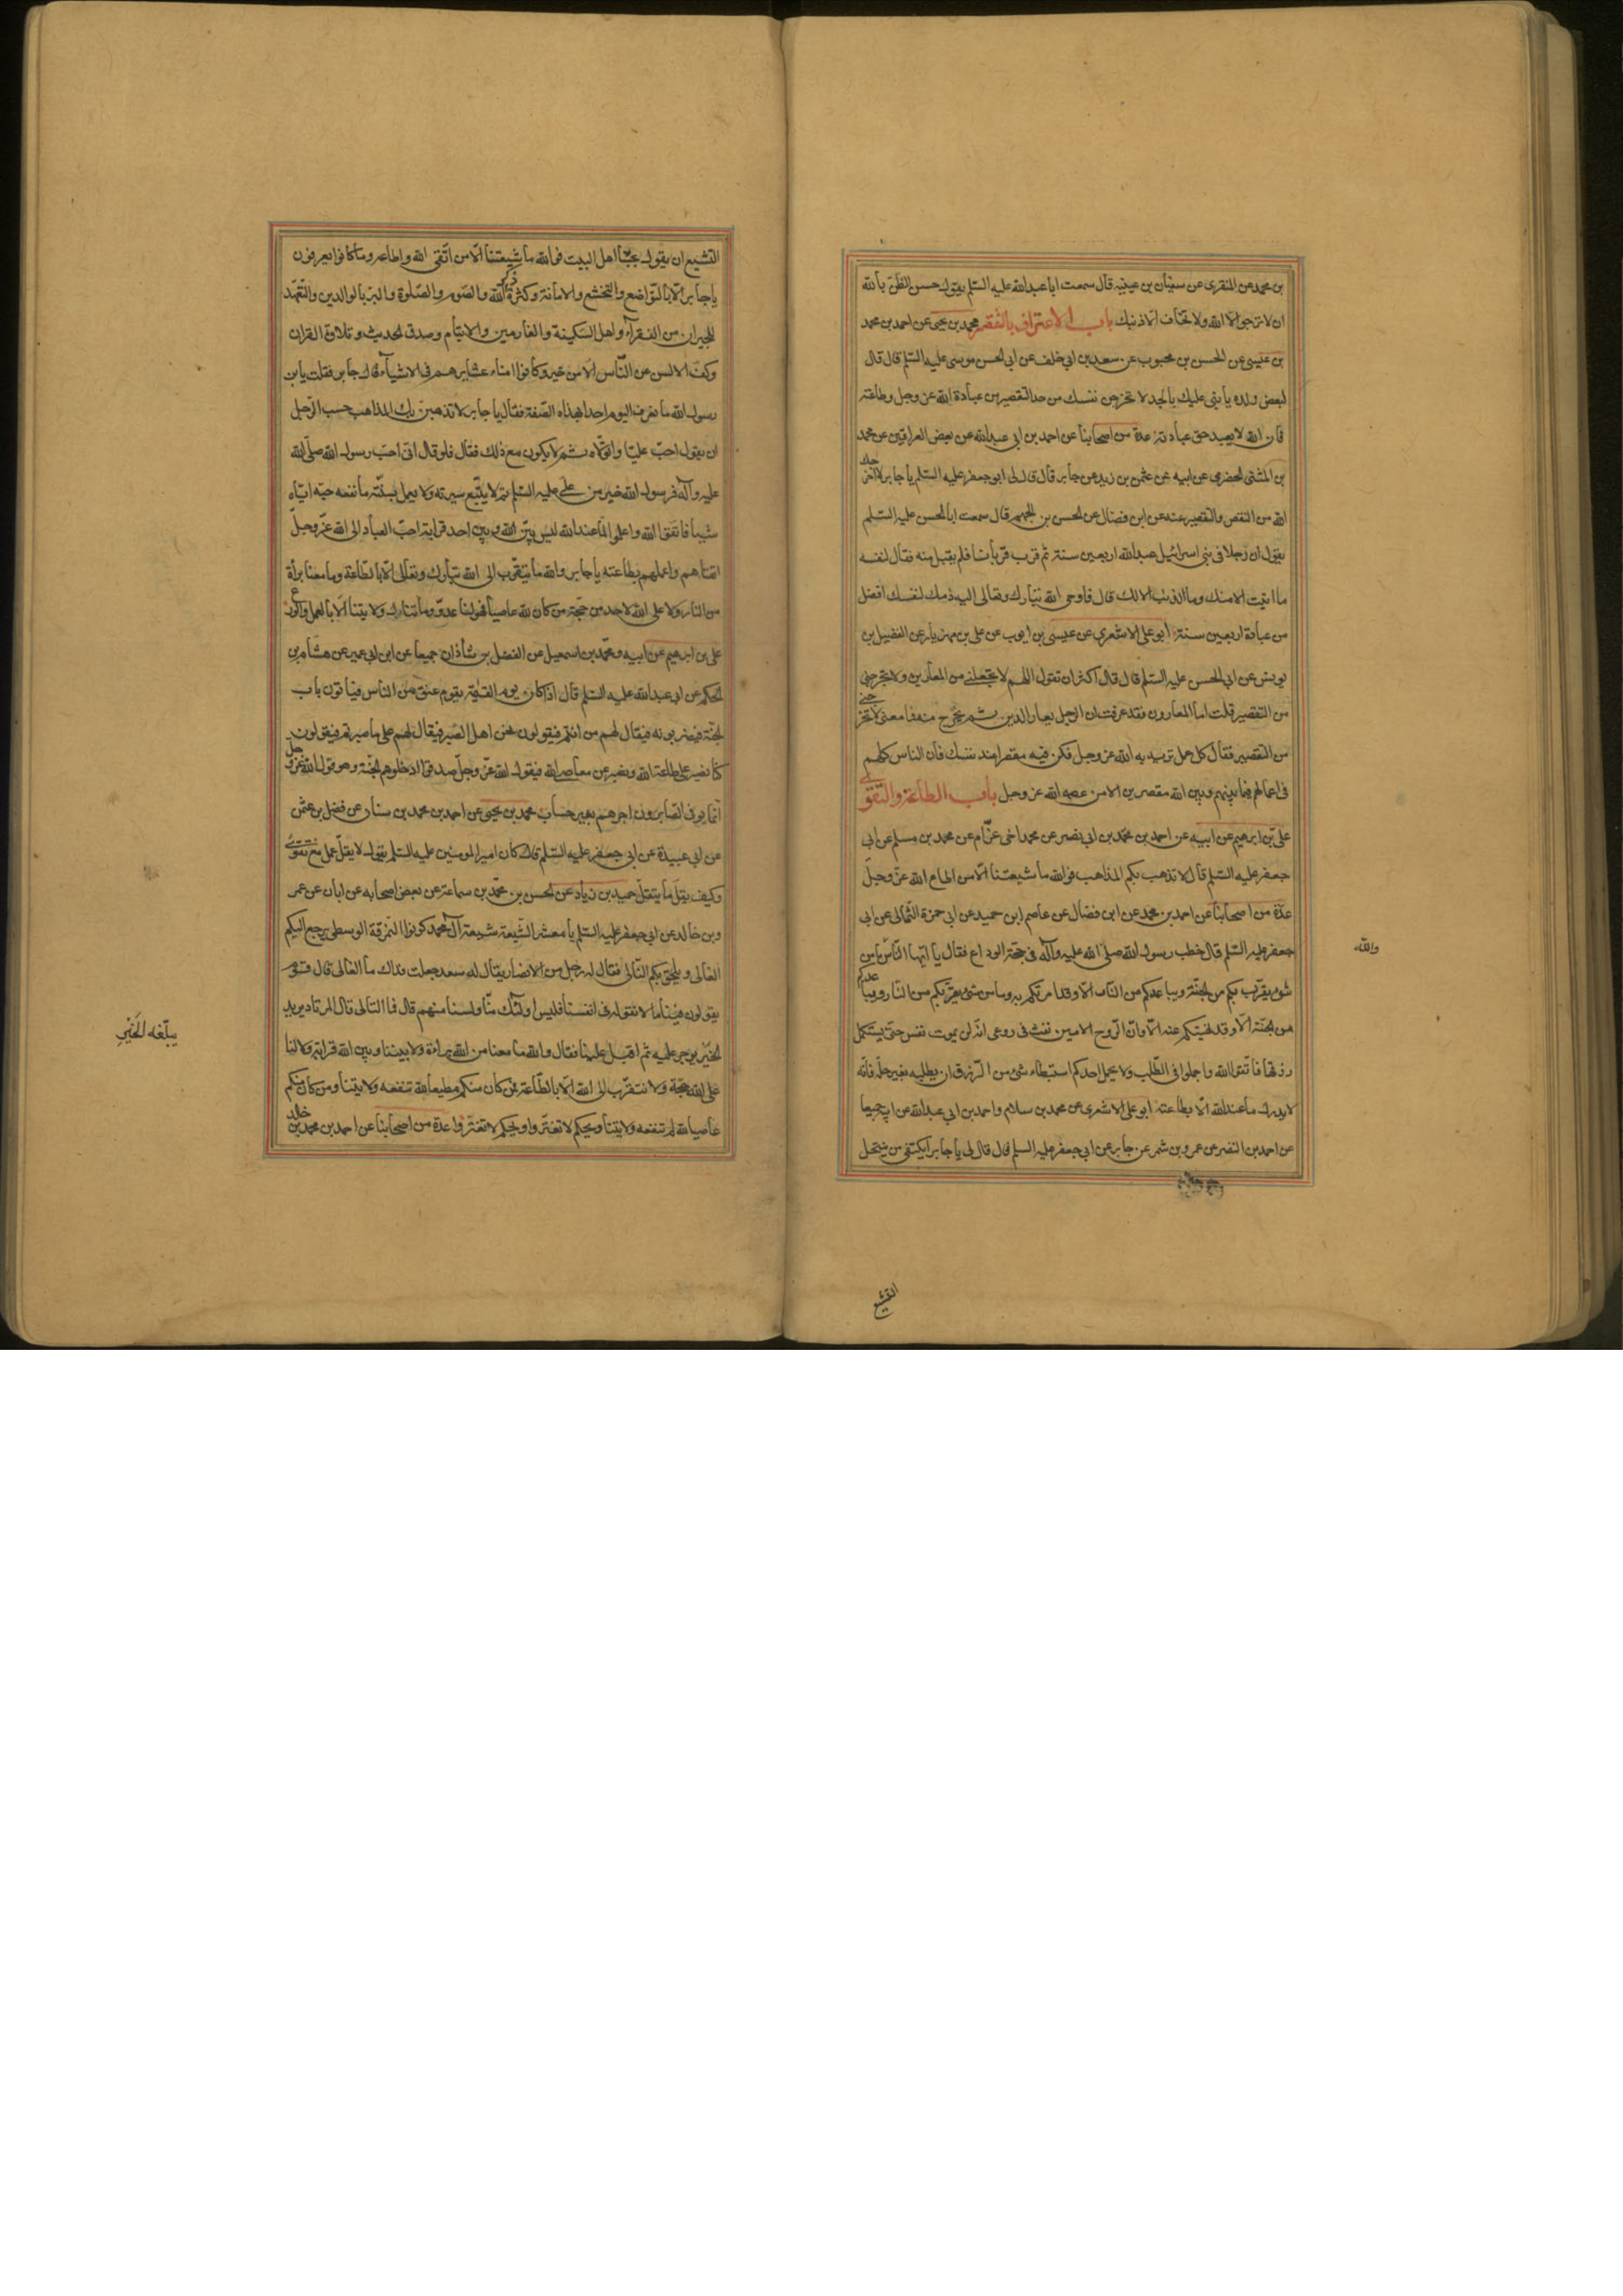 بن محمد عن المنقرى عن سفيان بن عيينه قال سمعت ابا عبدالله عليه السلم يقول حسن الظن بالله
ان لا ترجو الا الله ولا تخاف الا ذنبك باب الاعتراف بالتقصير محمد بن يحيى عن احمد بن محمد
بن عيسى عن الحسن بن محبوب عن سعد بن ابى خلف عن ابى الحسن موسى عليه السلم قال قال
لبعض ولده يا بنى عليك بالجد لا تخرجن نفسك من حد التقصير من عبادة الله عز وجل وطاعته
فان الله لا يعبد حق عبادته عدة من اصحابنا عن احمد بن ابى عبدالله عن بعض العراقيين عن محمد
بن المثنى الحضرمى عن ابيه عن عثمن بن زيد عن جابر قال قال لى ابو جعفر عليه السلم يا جابر لا اخرجك
الله من النقص والتقصير عنه عن ابن فضال عن الحسن بن الجهم قال سمعت ابا الحسن عليه السلم
يقول ان رجلا فى بنى اسرائيل عبد الله اربعين سنة ثم قرب قربانا فلم يقبل منه فقال لنفسه
ما اتيت الا منك وما الذنب الا لك قال فاوحى الله تبارك وتعالى اليه ذمك لنفسك افضل
من عبادة اربعين سنة ابو على الاشعرى عن عيسى بن ايوب عن على بن مهزيار عن الفضيل بن
يونس عن ابى الحسن عليه السلم قال قال اكثر ان تقول اللهم لا تجعلنى من المعارين ولا تخرجنى
من التقصير قلت اما المعارون فقد عرفت ان الرجل يعار الدين ثم يخرج منه فما معنى لا تخرجنى
من التقصير فقال كل عمل تريد به الله عز وجل فكن فيه مقصرا عند نفسك فان الناس كلهم
فى اعمالهم فيما بينهم وبين الله مقصرين الا من عصمه الله عز وجل باب الطاعة والتقوى
على بن ابرهيم عن ابيه عن احمد بن محمد بن ابى نصر عن محمد اخى عرام عن محمد بن مسلم عن ابى
جعفر عليه السلم قال لا تذهب بكم المذاهب فوالله ما شيعتنا الا من اطاع الله عز وجل
عدة من اصحابنا عن احمد بن محمد عن ابن فضال عن عاصم ابن حميد عن ابى حمزة الثمالى عن ابى
جعفر عليه السلم قال خطب رسول الله صلى الله عليه وآله فى حجة الوداع فقال يا ايها الناس ما من
والله
شىء يقرب بكم من الجنة ويباعدكم من النار الا وقد امرتكم به وما من شىء يقربكم من النار ويباعدكم
من الجنة الا وقد نهيتكم عنه الا وان الروح الامين نفث فى روعى انه لن يموت نفس حتى يستكمل
رزقها فاتقوا الله واجملوا فى الطلب ولا يحمل احدكم استبطاء شىء من الرزق ان يطلبه بغير حله فانه
لا يدرك ما عند الله الا بطاعته ابو على الاشعرى عن محمد بن سلام واحمد بن ابى عبدالله عن ابيه جميعا
عن احمد بن النضر عن عمرو بن شمر عن جابر عن ابى جعفر عليه السلم قال قال لى يا جابر ايكتفى من ينتحل
التشيع
التشيع ان يقول بحبنا اهل البيت فوالله ما شيعتنا الا من اتقى الله واطاعه وما كانوا يعرفون
يا جابر الا بالتواضع والتخشع والامانة وكثرة ذكر الله والصوم والصلوة والبر بالوالدين والتعهد
للجيران من الفقراء واهل السكينة والغارمين والايتام وصدق الحديث وتلاوة القران
وكف الالسن عن الناس الا من خير وكانوا امناء عشايرهم فى الاشياء قال جابر فقلت يابن
رسول الله ما نعرف اليوم احدا بهذه الصفة فقال يا جابر لا تذهبن بك المذاهب حسب الرجل
ان يقول احب عليا واتولاه ثم لا يكون مع ذلك فقال فلو قال انى احب رسول الله صلى الله
عليه وآله فرسول الله خير من على عليه السلم ثم لا يتبع سيرته ولا يعمل بسنته ما نفعه حبه اياه
شيئا فاتقوا الله واعملوا لما عند الله ليس بين الله وبين احد قرابة احب العباد الى الله عز وجل
اتقاهم واعملهم بطاعته يا جابر والله ما يتقرب الى الله تبارك وتعالى الا بالطاعة وما معنا براة
من النار ولا على الله لاحد من حجة من كان لله عاصيا فهو لنا عدو وما تنال ولايتنا الا بالعمل والورع
على بن ابرهيم عن ابيه ومحمد بن اسمعيل عن الفضل بن شاذان جميعا عن ابن ابى عمير عن هشام بن
الحكم عن ابى عبدالله عليه السلم قال اذا كان يوم القيمة يقوم عنق من الناس فياتون باب
الجنة فيضربونه فيقال لهم من انتم فيقولون نحن اهل الصبر فيقال لهم على ما صبرتم فيقولون
كنا نصبر على طاعة الله ونصبر عن معاصى الله فيقول الله عز وجل صدقوا ادخلوهم الجنة وهو قول الله عز وجل
انما يوفى الصابرون اجرهم بغير حساب محمد بن يحيى عن احمد بن محمد بن سنان عن فضل بن عثمن
عن ابى عبيدة عن ابى جعفر عليه السلم قال كان امير المومنين عليه السلم يقول لا يقل عمل مع تقوى
وكيف يقل ما يتقبل حميد بن زياد عن الحسن بن محمد بن سماعة عن بعض اصحابه عن ابان عن عمر
وبن خالد عن ابى جعفر عليه السلم يا معشر الشيعة شيعة آل محمد كونوا النمرقة الوسطى يرجع اليكم
الغالى ويلحق بكم التالى فقال له رجل من الانصار يقال له سعد جعلت فداك ما الغالى قال قوم
يقولون فينا ما لا نقوله فى انفسنا فليس اولئك منا ولسنا منهم قال فما التالى قال المرتاد يريد
يبلغه الخير
الخير يوجر عليه ثم اقبل علينا فقال والله ما معنا من الله براءة ولا بيننا وبين الله قرابة ولا لنا
على الله حجة ولا نتقرب الى الله الا بالطاعة فمن كان منكم مطيعا لله تنفعه ولايتنا ومن كان منكم
عاصيا لله لم تنفعه ولايتنا ويحكم لا تغتروا ويحكم لا تغتروا عدة من اصحابنا عن احمد بن محمد بن خالد